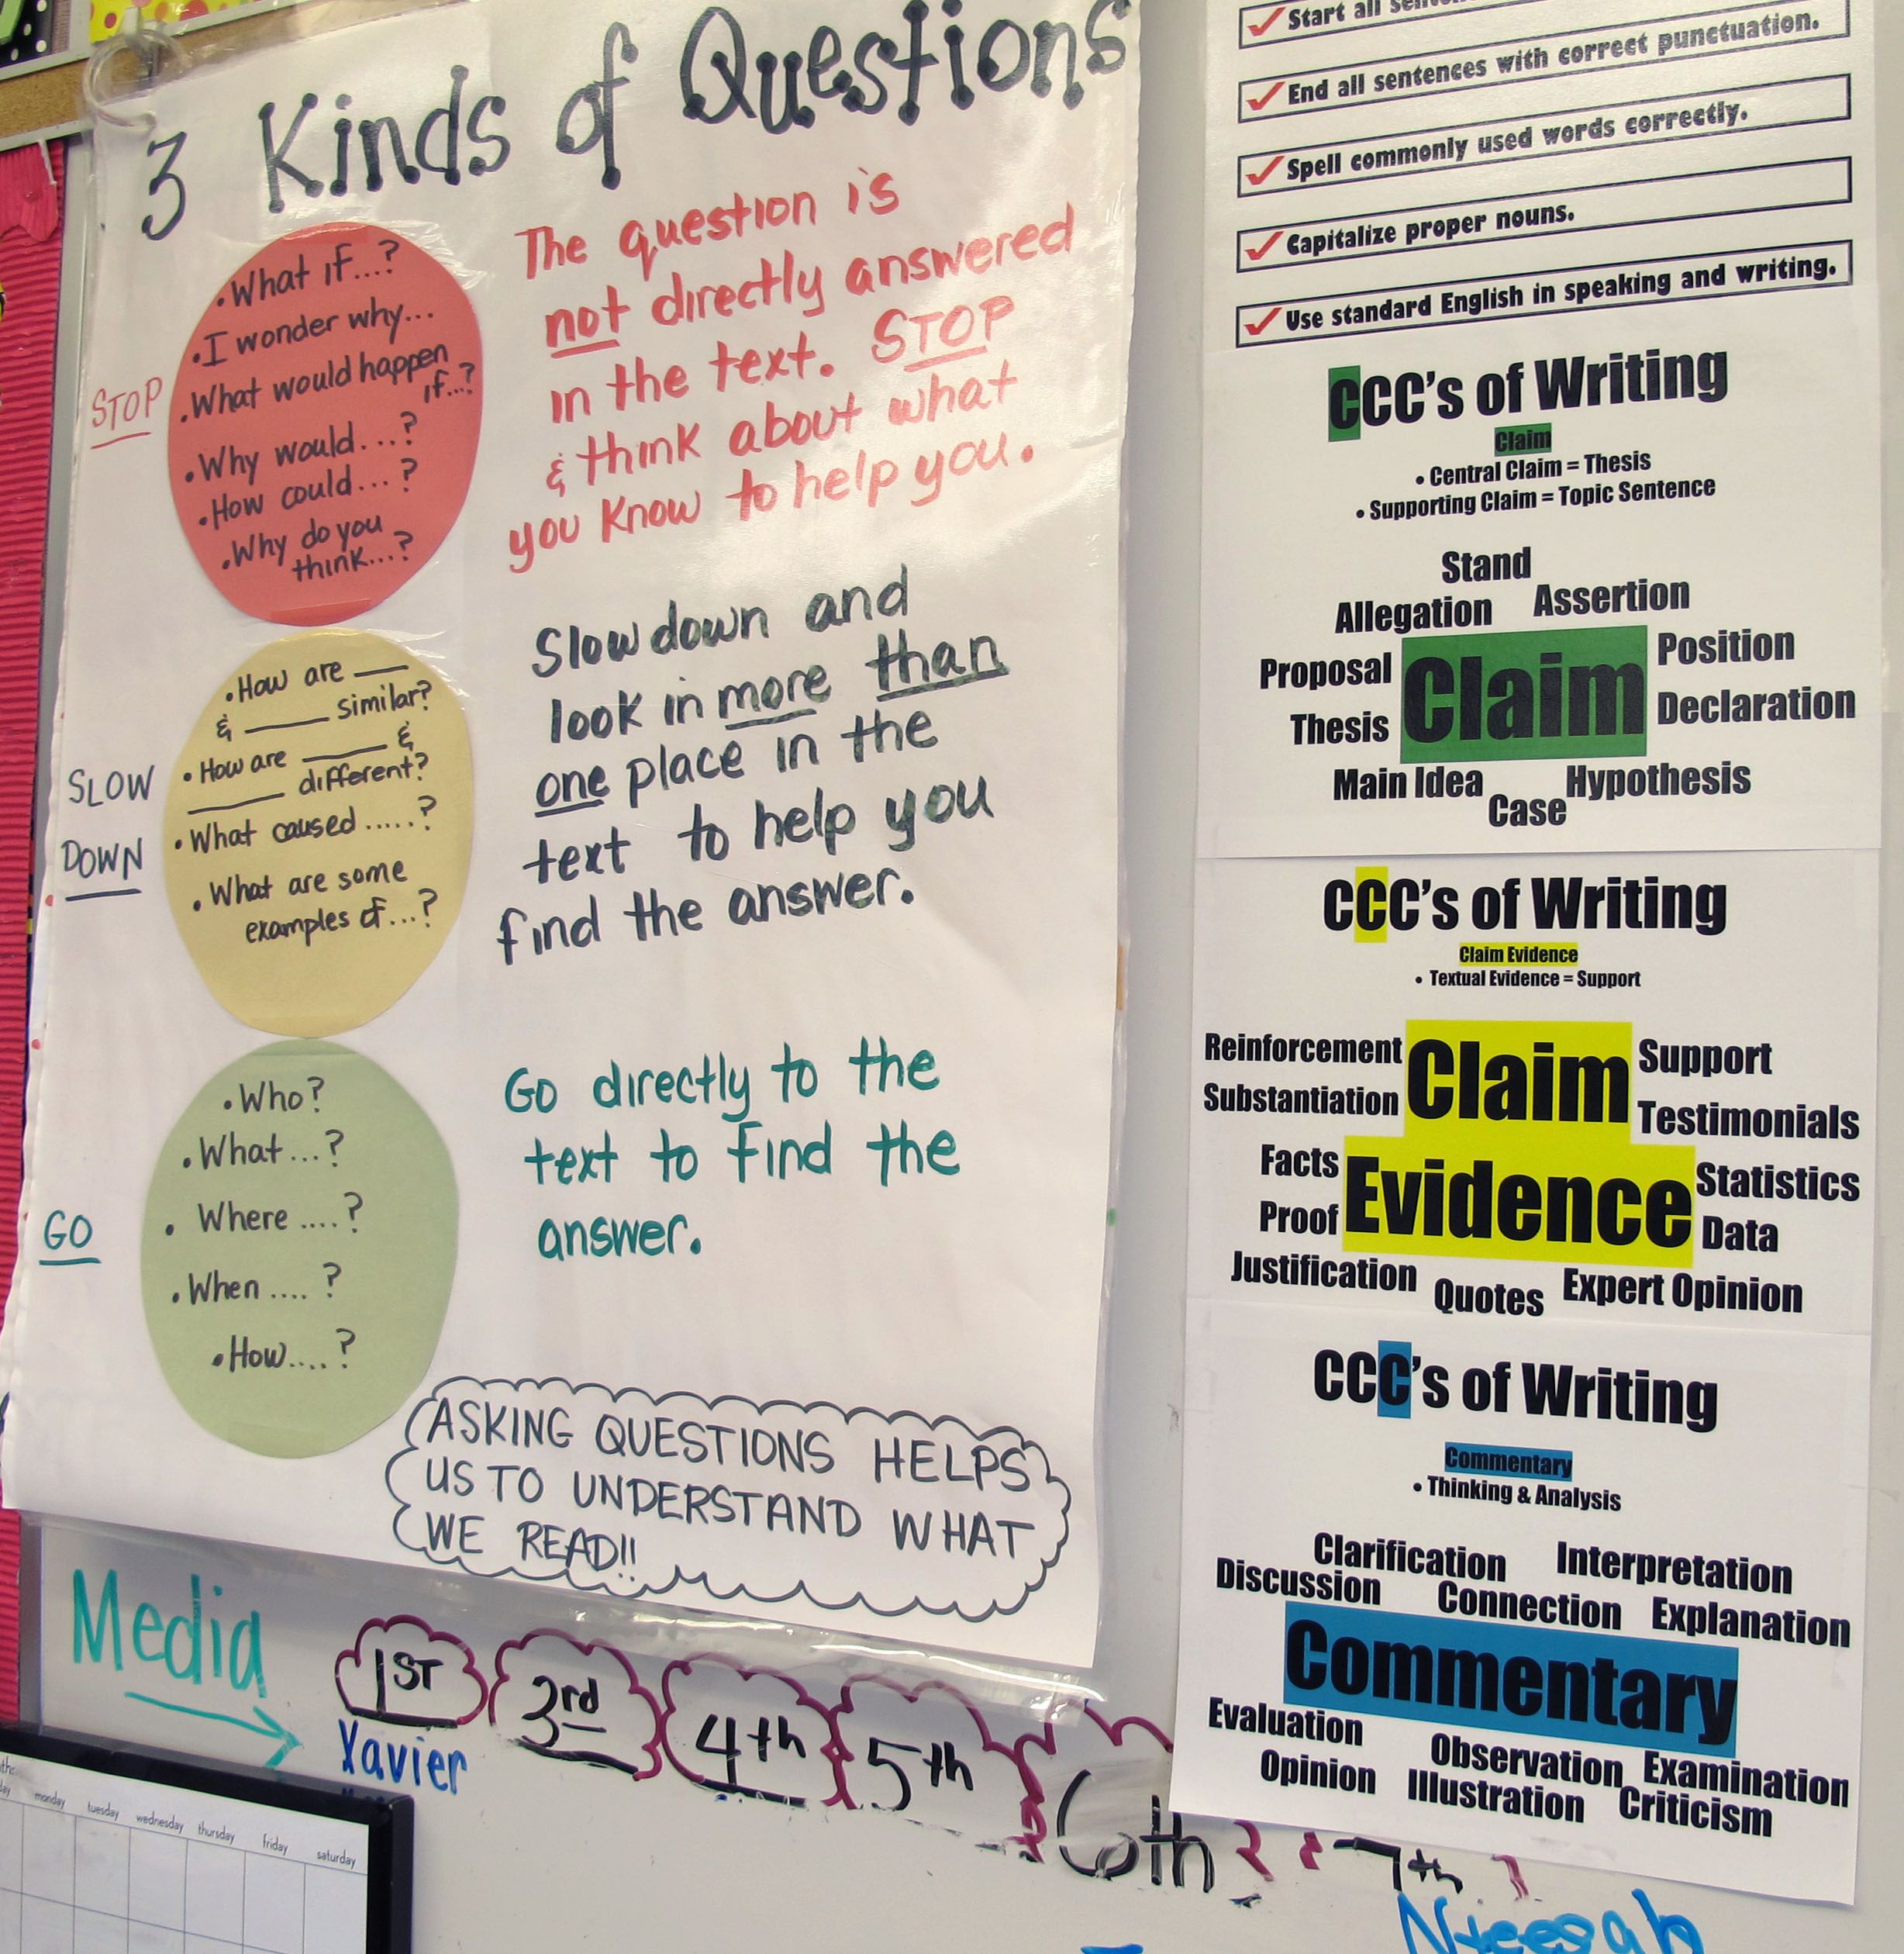 3 Kinds of Questions
STOP
• What if...?
• I wonder why...
• What would happen
if...?
• Why would....?
• How could....?
• Why do you
think....?
The question is
not directly answered
in the text. STOP
& think about what
you know to help you.
SLOW
DOWN
• How are ____
& ____ similar?
• How are ____ &
____ different?
• What caused .....?
• What are some
examples of...?
Slow down and
look in more than
one place in the
text to help you
find the answer.
GO
• Who?
• What ...?
• Where ....?
• When .... ?
• How....?
Go directly to the
text to find the
answer.
ASKING QUESTIONS HELPS
US TO UNDERSTAND WHAT
WE READ!!
Media
1ST
3rd
4th
5th
6th
7th
Xavier
monday tuesday wednesday thursday friday saturday
Start all
End all sentences with correct punctuation.
Spell commonly used words correctly.
Capitalize proper nouns.
Use standard English in speaking and writing.
CCC's of Writing
Claim
• Central Claim = Thesis
• Supporting Claim = Topic Sentence
Stand
Allegation Assertion
Proposal Claim Position
Thesis Declaration
Main Idea Hypothesis
Case
CCC's of Writing
Claim Evidence
• Textual Evidence = Support
Reinforcement Claim Support
Substantiation Testimonials
Facts Evidence Statistics
Proof Data
Justification Quotes Expert Opinion
CCC's of Writing
Commentary
• Thinking & Analysis
Clarification Interpretation
Discussion Connection Explanation
Commentary
Evaluation Observation Examination
Opinion Illustration Criticism